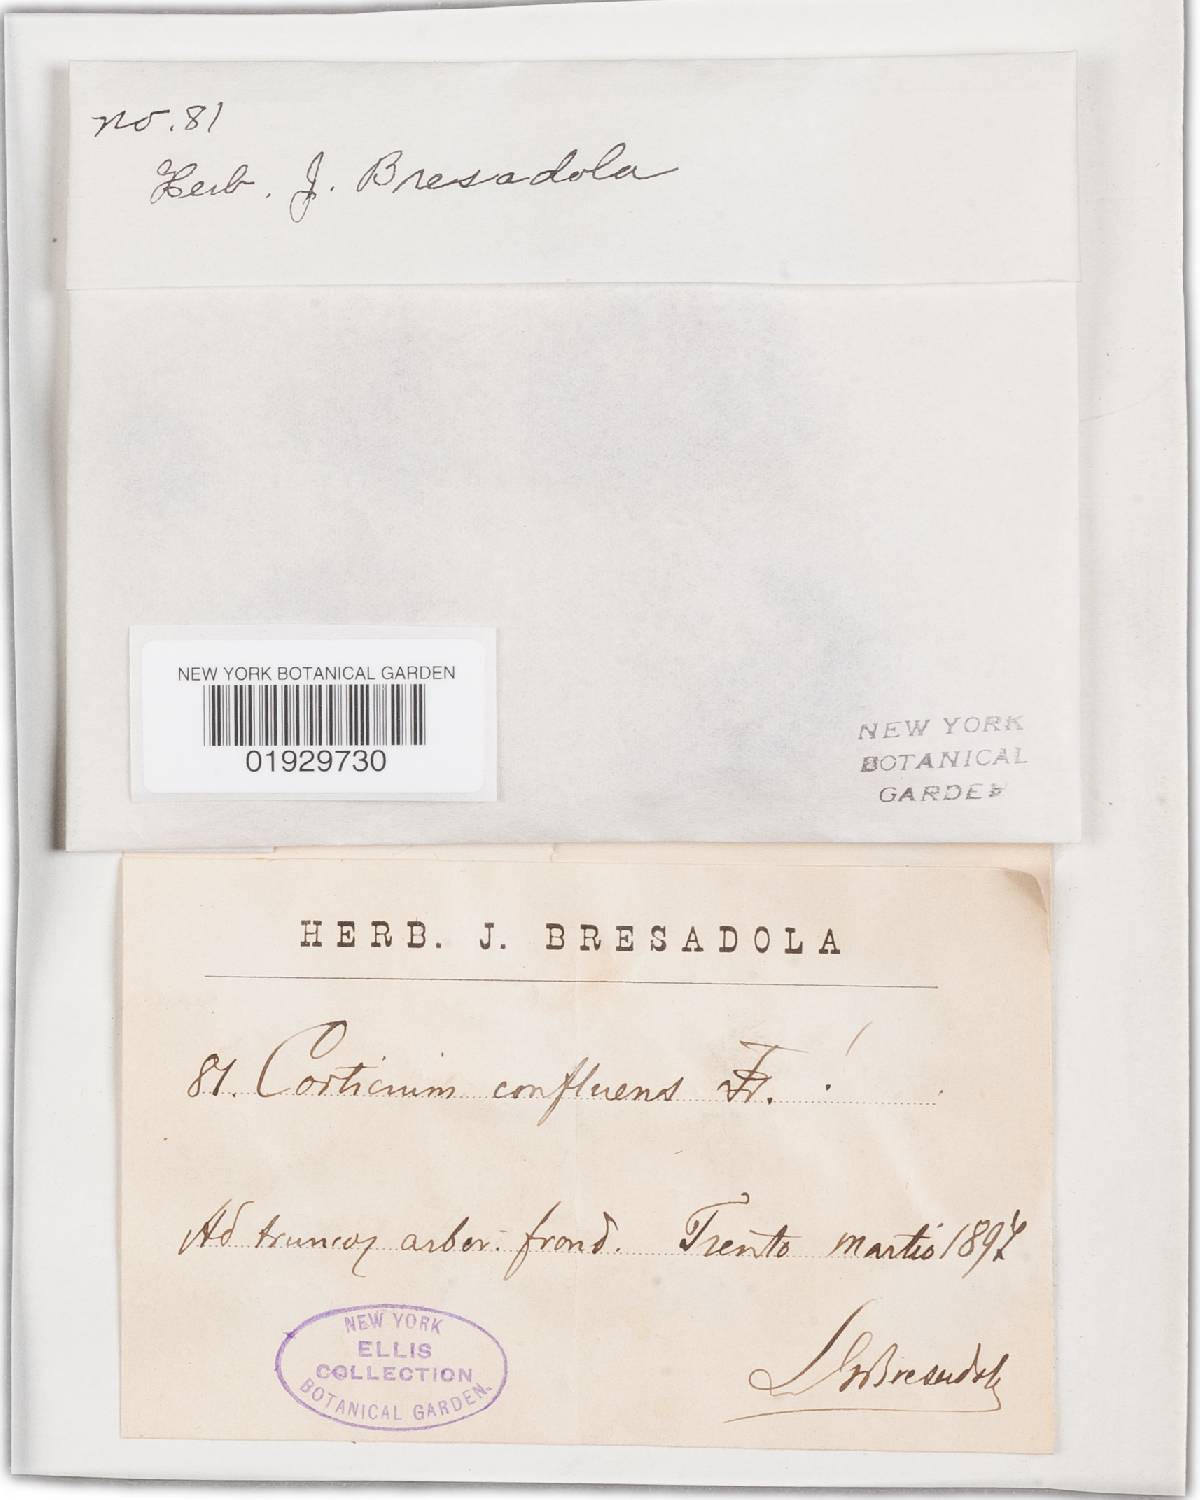 no. 81
Herb. J. Bresadola
NEW YORK BOTANICAL GARDEN
01929730
NEW YORK
BOTANICAL
GARDEN
HERB. J. BRESADOLA
81. Corticium confluens Fr. !
Ad truncos arbor. frond. Trento martio 1897
Bresadola
NEW YORK
ELLIS
COLLECTION
BOTANICAL GARDEN.